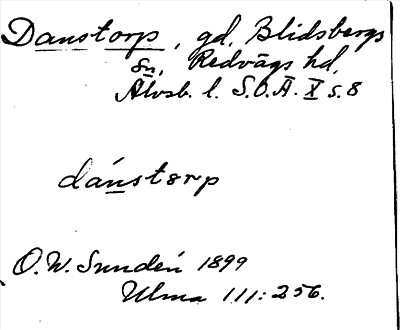 Danstorp, gd, Blidsbergs
sn, Redvägs hd,
Älvsb. l. S.O.Ä. X s. 8
dánstorp
O.W. Sundén 1899
Ulma 111:256.